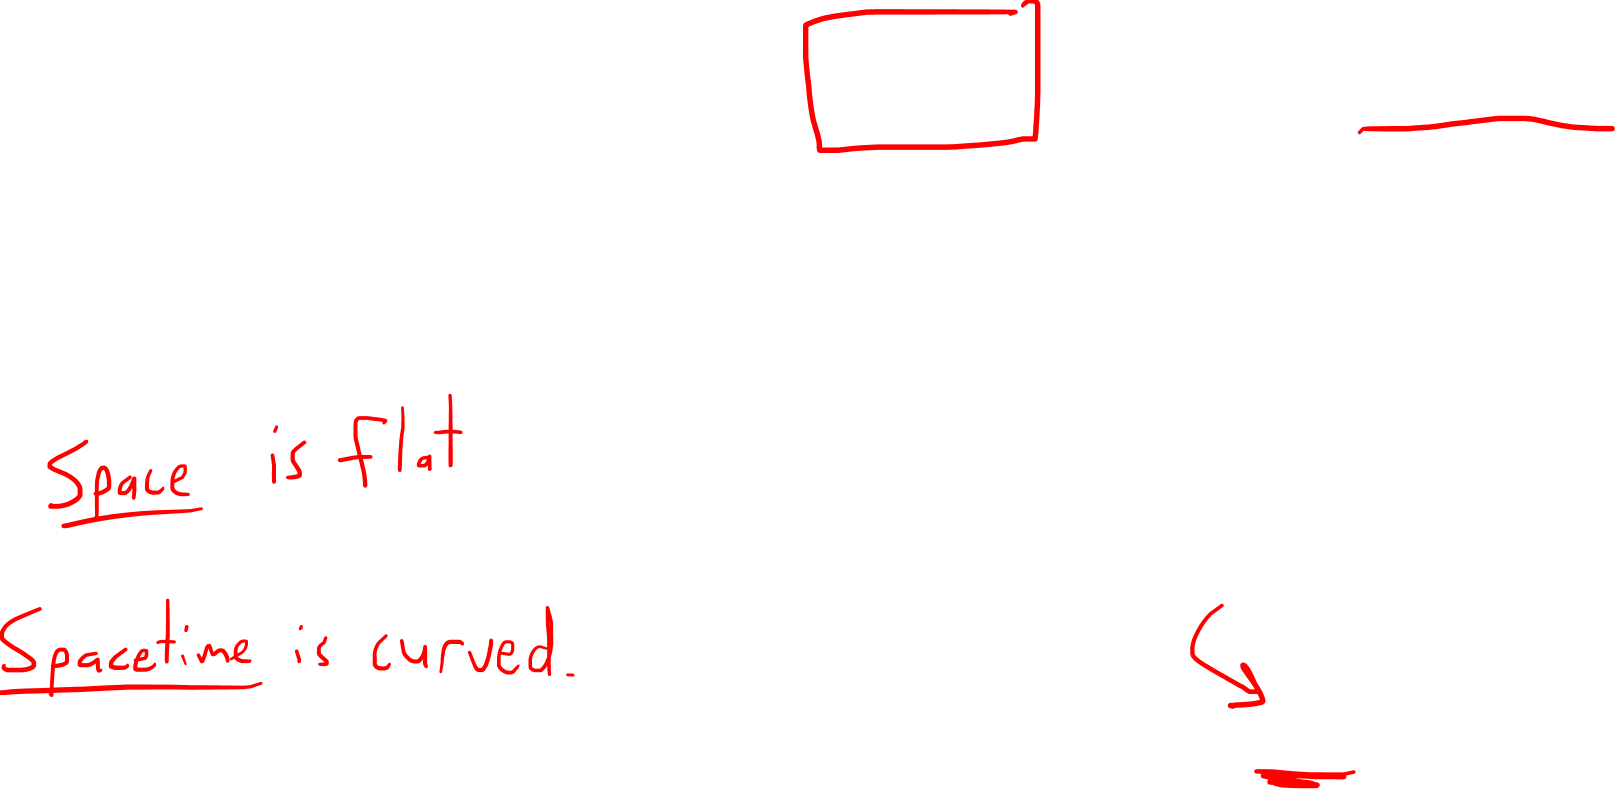 Space is flat
Spacetime is curved.